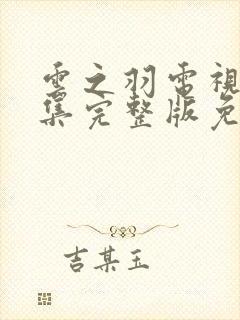 雲之羽電視
集完整版免
吉某玉